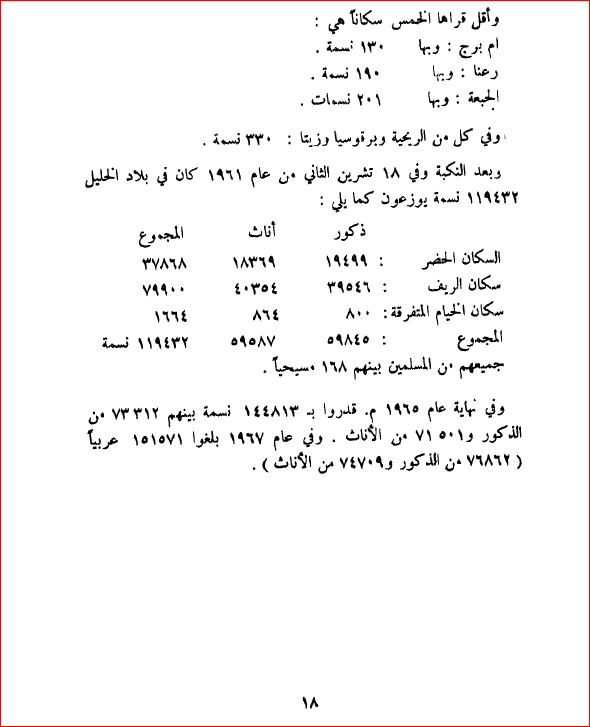 وأقل قراها الخمس سكاناً هي :
ام برج : وبها ١٣٠ نسمة .
رعنا : وبها ١٩٠ نسمة .
الجبعة : وبها ٢٠١ نسمات .
وفي كل من الريحية وبرقوسيا وزيتا : ٣٣٠ نسمة .
وبعد النكبة وفي ١٨ تشرين الثاني من عام ١٩٦١ كان في بلاد الخليل
١١٩٤٣٢ نسمة يوزعون كما يلي :
ذكور أناث المجموع
السكان الحضر : ١٩٤٩٩ ١٨٣٦٩ ٣٧٨٦٨
سكان الريف : ٣٩٥٤٦ ٤٠٣٥٤ ٧٩٩٠٠
سكان الخيام المتفرقة : ٨٠٠ ٨٦٤ ١٦٦٤
المجموع : ٥٩٨٤٥ ٥٩٥٨٧ ١١٩٤٣٢ نسمة
جميعهم من المسلمين بينهم ١٦٨ مسيحياً .
وفي نهاية عام ١٩٦٥ م. قدروا بـ ١٤٤٨١٣ نسمة بينهم ٧٣٣١٢ من
الذكور و٧١٥٠١ من الأناث . وفي عام ١٩٦٧ بلغوا ١٥١٥٧١ عربياً
( ٧٦٨٦٢ من الذكور و٧٤٧٠٩ من الأناث ) .
١٨